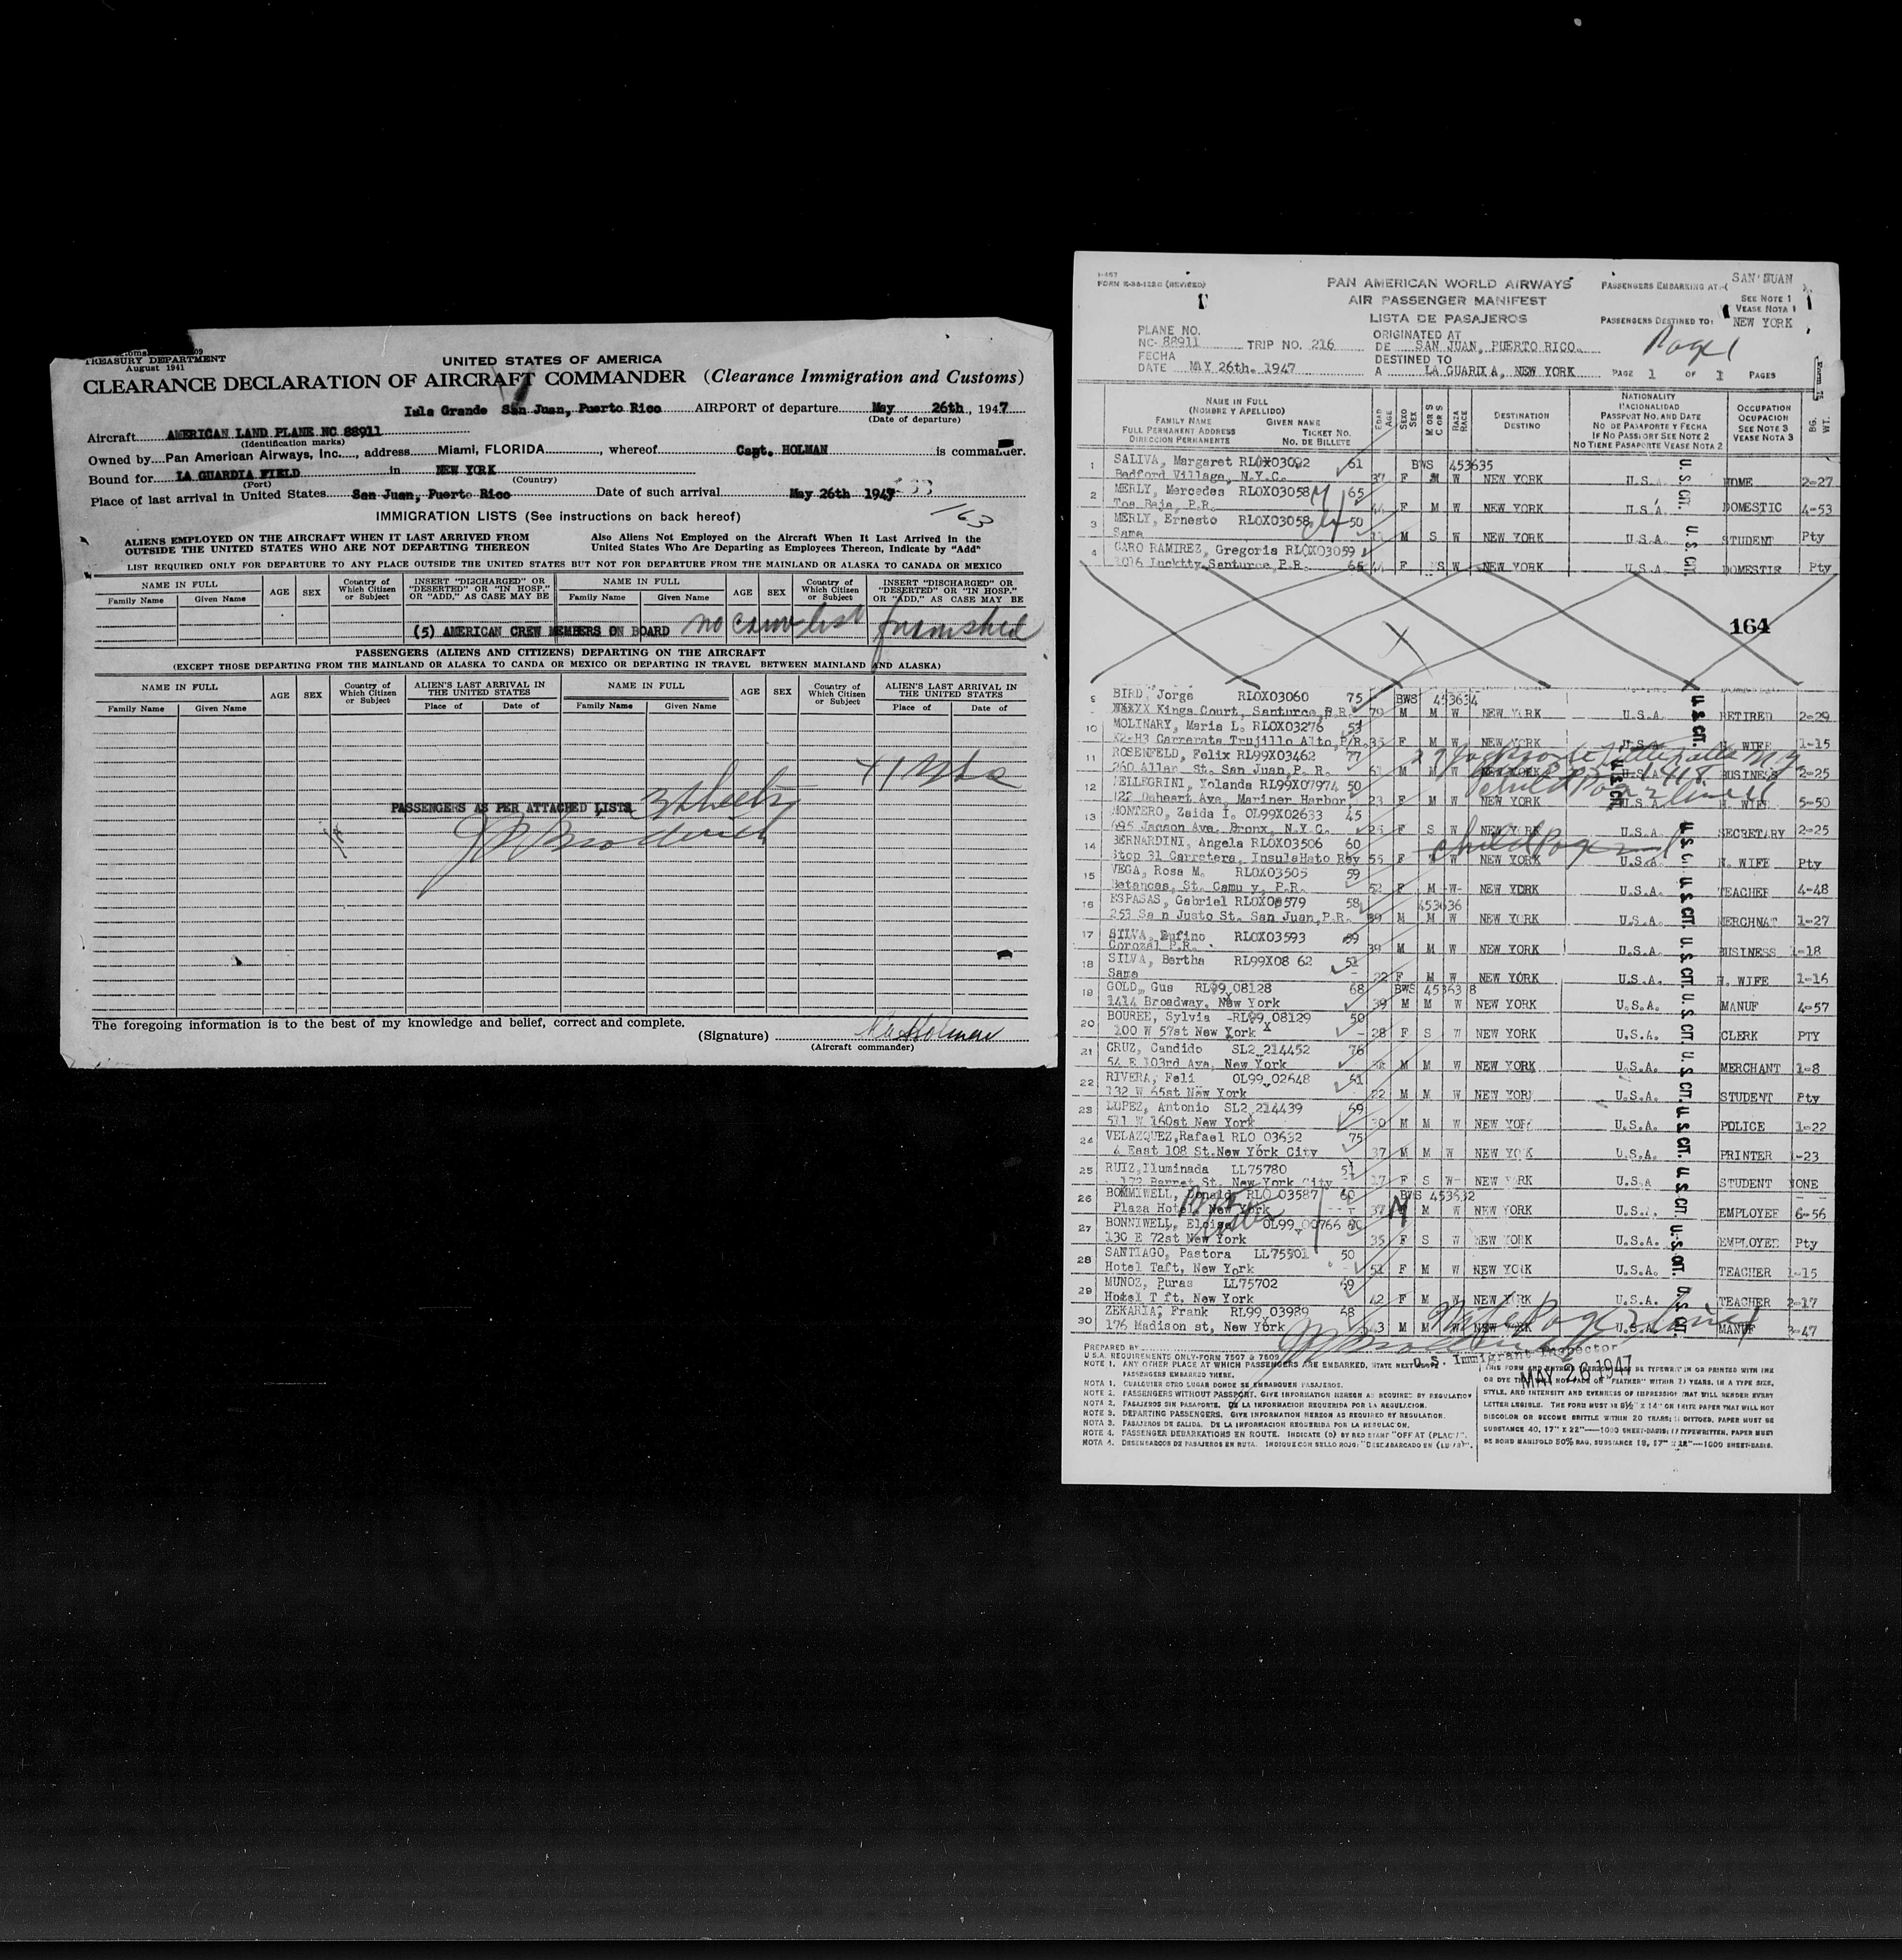 TREASURY DEPARTMENT
August 1941
UNITED STATES OF AMERICA
CLEARANCE DECLARATION OF AIRCRAFT COMMANDER (Clearance Immigration and Customs)
Isla Grande San Juan, Puerto Rico AIRPORT of departure May 26th, 1947
(Date of departure)
Aircraft AMERICAN LAND PLANE NC 88911
(Identification marks)
Owned by Pan American Airways, Inc., address Miami, FLORIDA, whereof Capt. HOLMAN is commander.
Bound for LA GUARDIA FIELD in NEW YORK
(Port) (Country)
Place of last arrival in United States San Juan, Puerto Rico Date of such arrival May 26th 1947
163
IMMIGRATION LISTS (See instructions on back hereof)
ALIENS EMPLOYED ON THE AIRCRAFT WHEN IT LAST ARRIVED FROM OUTSIDE THE UNITED STATES WHO ARE NOT DEPARTING THEREON
Also Aliens Not Employed on the Aircraft When It Last Arrived in the United States Who Are Departing as Employees Thereon, Indicate by "Add"
LIST REQUIRED ONLY FOR DEPARTURE TO ANY PLACE OUTSIDE THE UNITED STATES BUT NOT FOR DEPARTURE FROM THE MAINLAND OR ALASKA TO CANADA OR MEXICO
NAME IN FULL AGE SEX Country of Which Citizen or Subject INSERT "DISCHARGED" OR "DESERTED" OR "IN HOSP." OR "ADD," AS CASE MAY BE NAME IN FULL AGE SEX Country of Which Citizen or Subject INSERT "DISCHARGED" OR "DESERTED" OR "IN HOSP." OR "ADD," AS CASE MAY BE
Family Name Given Name Family Name Given Name
(5) AMERICAN CREW MEMBERS ON BOARD no crew list furnished
PASSENGERS (ALIENS AND CITIZENS) DEPARTING ON THE AIRCRAFT
(EXCEPT THOSE DEPARTING FROM THE MAINLAND OR ALASKA TO CANDA OR MEXICO OR DEPARTING IN TRAVEL BETWEEN MAINLAND AND ALASKA)
NAME IN FULL AGE SEX Country of Which Citizen or Subject ALIEN'S LAST ARRIVAL IN THE UNITED STATES NAME IN FULL AGE SEX Country of Which Citizen or Subject ALIEN'S LAST ARRIVAL IN THE UNITED STATES
Family Name Given Name Place of Date of Family Name Given Name Place of Date of
PASSENGERS AS PER ATTACHED LISTS 3 sheets
The foregoing information is to the best of my knowledge and belief, correct and complete.
(Signature) Holman
(Aircraft commander)
FORM (REVISED)
PAN AMERICAN WORLD AIRWAYS
AIR PASSENGER MANIFEST
LISTA DE PASAJEROS
PASSENGERS EMBARKING AT: SAN JUAN
SEE NOTE 1
VEASE NOTA 1
PASSENGERS DESTINED TO: NEW YORK
PLANE NO.
NC- 88911 TRIP NO. 216
ORIGINATED AT
DE SAN JUAN, PUERTO RICO
FECHA
DATE MAY 26th. 1947
DESTINED TO
A LA GUARDIA, NEW YORK
PAGE 1 OF 1 PAGES
NAME IN FULL
(NOMBRE Y APELLIDO)
FAMILY NAME GIVEN NAME
FULL PERMANENT ADDRESS TICKET NO.
DIRECCION PERMANENTE NO. DE BILLETE
EDAD AGE SEXO SEX M OR S C OR S RAZA RACE DESTINATION DESTINO
NATIONALITY NACIONALIDAD PASSPORT NO. AND DATE NO. DE PASAPORTE Y FECHA IF NO PASSPORT SEE NOTE 2 NO TIENE PASAPORTE VEASE NOTA 2
OCCUPATION OCUPACION SEE NOTE 3 VEASE NOTA 3
BG. WT.
1 SALIVA, Margaret RLOX03092 61 BWS 453635
Bedford Village, N.Y.C. 37 F M W NEW YORK U.S.A. HOME 2-27
2 MERLY, Mercedes RLOX03058 65
Toa Baja, P.R. 44 F M W NEW YORK U.S.A. DOMESTIC 4-53
3 MERLY, Ernesto RLOX03058 50
Same M S W NEW YORK U.S.A. STUDENT Pty
4 CARO RAMIREZ, Gregoria RLOX03059
Santurce, P.R. 66 F S W NEW YORK U.S.A. DOMESTIR Pty
164
9 BIRD, Jorge RLOX03060 75 BWS 453634
Kings Court, Santurce, P.R. 79 M M W NEW YORK U.S.A. RETIRED 2-29
10 MOLINARY, Maria L. RLOX03276 53
K2-H3 Carrerata Trujillo Alto, P.R. 35 F M W NEW YORK U.S.A. H. WIFE 1-15
11 ROSENFELD, Felix RL99X03462 77
260 Allan St. San Juan, P. R. 61 M M W NEW YORK U.S.A. BUSINESS 2-25
12 PELLEGRINI, Yolanda RL99X07974 50
122 Daheart Ave, Mariner Harbor, 23 F M W NEW YORK U.S.A. H. WIFE 5-50
13 MONTERO, Zaida I. OL99X02633 45
695 Jacson Ave. Bronx, N.Y.C. 25 F S W NEW YORK U.S.A. SECRETARY 2-25
14 BERNARDINI, Angela RLOX03506 60
Stop 31 Carretera, InsulaHato Rey 55 F W NEW YORK U.S.A. H. WIFE Pty
15 VEGA, Rosa M. RLOX03505 59
Betances, St. Camu y, P.R. 52 F M W NEW YORK U.S.A. TEACHER 4-48
16 ESPASAS, Gabriel RLOX03579 58 453636
253 Sa n Justo St. San Juan, P.R. 39 M M W NEW YORK U.S.A. MERCHNAT 1-27
17 SILVA, Rufino RLOX03593 69
Corozal P.R. 39 M M W NEW YORK U.S.A. BUSINESS 1-18
18 SILVA, Bertha RL99X08 62 51
Same 22 F M W NEW YORK U.S.A. H. WIFE 1-16
19 GOLD, Gus RL99 08128 68 BWS 453638
1414 Broadway, New York 39 M M W NEW YORK U.S.A. MANUF 4-57
20 BOUREE, Sylvia RL99 08129 50
100 W 57st New York 28 F S W NEW YORK U.S.A. CLERK PTY
21 CRUZ, Candido SL2 214452 76
54 E 103rd Ave, New York M M W NEW YORK U.S.A. MERCHANT 1-8
22 RIVERA, Feli OL99 02648 61
132 W 65st New York 22 M M W NEW YORK U.S.A. STUDENT Pty
23 LOPEZ, Antonio SL2 214439 69
571 W 160st New York 30 M M W NEW YORK U.S.A. POLICE 1-22
24 VELAZQUEZ, Rafael RLO 03632 75
4 East 108 St. New York City 37 M M W NEW YORK U.S.A. PRINTER 1-23
25 RUIZ, Iluminada LL75780 51
172 Barret St. New York City 17 F S W NEW YORK U.S.A STUDENT NONE
26 BONNIWELL, Donald RLO 03587 60 BWS 453632
Plaza Hotel, New York 37 M M W NEW YORK U.S.A. EMPLOYEE 6-56
27 BONNIWELL, Eloise OL99 00766
130 E 72st New York 35 F S W NEW YORK U.S.A. EMPLOYEE Pty
28 SANTIAGO, Pastora LL75501 50
Hotel Taft, New York 51 F M W NEW YORK U.S.A. TEACHER 1-15
29 MUNOZ, Puras LL75702 69
Hotel T ft. New York 42 F M W NEW YORK U.S.A. TEACHER 2-17
30 ZEKARIA, Frank RL99 03989 68
176 Madison st, New York 43 M M W NEW YORK U.S.A. MANUF 3-47
U.S. CIT.
PREPARED BY
U.S. Immigrant Inspector
MAY 26 1947
U.S.A. REQUIREMENTS ONLY-FORM 7507 & 7509
NOTE 1. ANY OTHER PLACE AT WHICH PASSENGERS ARE EMBARKED, STATE NEXT ABOVE
PASSENGERS EMBARKED THERE.
NOTA 1. CUALQUIER OTRO LUGAR DONDE SE EMBARQUEN PASAJEROS.
NOTE 2. PASSENGERS WITHOUT PASSPORT. GIVE INFORMATION HEREON AS REQUIRED BY REGULATION
NOTA 2. PASAJEROS SIN PASAPORTE. DE LA INFORMACION REQUERIDA POR LA REGULACION.
NOTE 3. DEPARTING PASSENGERS. GIVE INFORMATION HEREON AS REQUIRED BY REGULATION.
NOTA 3. PASAJEROS DE SALIDA. DE LA INFORMACION REQUERIDA POR LA REGULACION.
NOTE 4. PASSENGER DEBARKATIONS EN ROUTE. INDICATE (D) BY RED STAMP "OFF AT (PLACE)".
NOTA 4. DESEMBARCOS DE PASAJEROS EN RUTA. INDIQUE CON SELLO ROJO: "DESEMBARCADO EN (LUGAR)".
LETTER LEGIBLE. THE FORM MUST BE 8½" X 14" ON WHITE PAPER THAT WILL NOT
DISCOLOR OR BECOME BRITTLE WITHIN 20 YEARS; IF DITTOED, PAPER MUST BE
SUBSTANCE 40, 17" X 22"—1000 SHEET-BASIS; IF TYPEWRITTEN, PAPER MUST
BE BOND MANIFOLD 50% RAG, SUBSTANCE 18, 17" X 22"—1000 SHEET-BASIS.